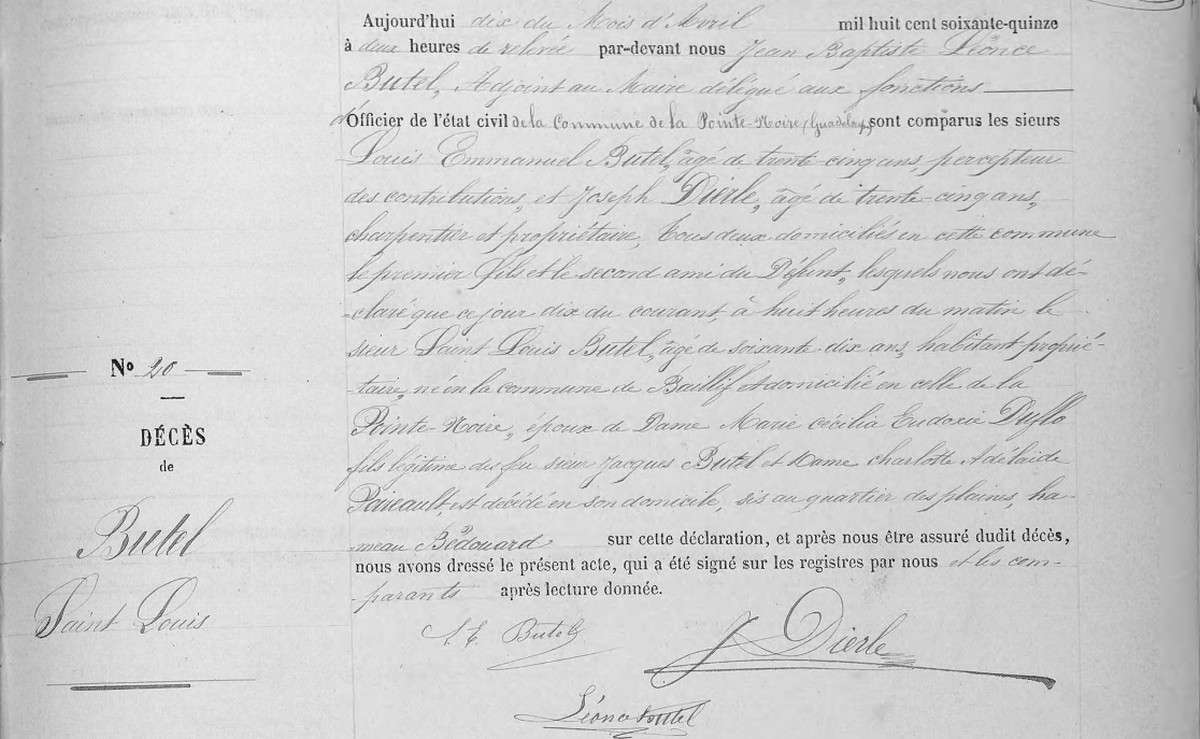 Aujourd'hui dix du Mois d'Avril mil huit cent soixante-quinze
à deux heures de relevée par-devant nous Jean Baptiste Léonce
Butel, Adjoint au Maire délégué aux fonctions
d'Officier de l'état civil de la Commune de la Pointe-Noire (Guadeloupe) sont comparus les sieurs
Louis Emmanuel Butel, âgé de trente-cinq ans, percepteur
des contributions, et Joseph Dierle, âgé de trente-cinq ans,
charpentier et propriétaire, tous deux domiciliés en cette commune
le premier fils et le second ami du Défunt, lesquels nous ont dé-
-claré que ce jour dix du courant, à huit heures du matin le
sieur Saint Louis Butel, âgé de soixante-dix ans, habitant proprié-
-taire, né en la commune de Baillif et domicilié en celle de la
Pointe-Noire, époux de Dame Marie Cécilia Eudoxie Duflo
fils légitime de feu sieur Jacques Butel et Dame Charlotte Adélaïde
est décédé en son domicile, sis au quartier des plaines, ha-
-meau Bédouard sur cette déclaration, et après nous être assuré dudit décès,
nous avons dressé le présent acte, qui a été signé sur les registres par nous et les com-
-parants après lecture donnée.
Nº 20
DÉCÈS
de
Butel
Saint Louis
L E Butel
J Dierle
Léonce Butel